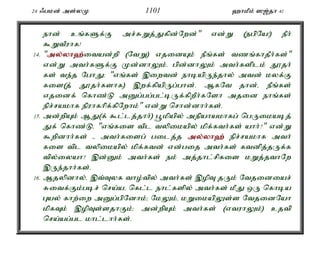 24 ஃபமன் அள்லமு 1101 ஹாமீம் ஸஜ்தா 41
நான் உங்களுக்கு அச்சுறுத்துகின்றேன்" என்று (நபியே!) நீர்
கூறுவீராக!
14. "அல்லாஹ்வையன்றி (வேறு) எதனையும் நீங்கள் வணங்காதீர்கள்"
என்று அவர்களுக்கு முன்னாலும், பின்னாலும் அவர்களிடம் தூதர்
கள் வந்த போது "எங்கள் இறைவன் நாடியிருந்தால் அவன் மலக்கு
களை(த் தூதர்களாக) இறக்கியிருப்பான். ஆகவே தான், நீங்கள்
எதனைக் கொண்டு அனுப்பப்பட்டிருக்கிறீர்களோ அதனை நாங்கள்
நிச்சயமாக நிராகரிக்கிறோம்" என்று சொன்னார்கள்.
15. அன்றியும் ஆது(க் கூட்டத்தார்) பூமியில் அநியாயமாகப் பெருமையடித்
துக் கொண்டு, "எங்களை விட வலிமையில் மிக்கவர்கள் யார்?" என்று
கூறினார்கள் - அவர்களைப் படைத்த அல்லாஹ் நிச்சயமாக அவர்
களை விட வலிமையில் மிக்கவன் என்பதை அவர்கள் கவனித்திருக்க
வில்லையா? இன்னும் அவர்கள் நம் அத்தாட்சிகளை மறுத்தவாறே
இருந்தார்கள்.
16. ஆதலினால், இவ்வுலக வாழ்வில் அவர்கள் இழிவு தரும் வேதனையைச்
சுவைக்கும்படிச் செய்ய, கெட்ட நாட்களில் அவர்கள் மீது ஒரு கொடிய
புயல் காற்றை அனுப்பினோம்; மேலும், மறுமையிலுள்ள வேதனையோ
மிகவும் இழிவுள்ளதாகும்: அன்றியும் அவர்கள் (எவராலும்) உதவி
செய்யப்பட மாட்டார்கள்.